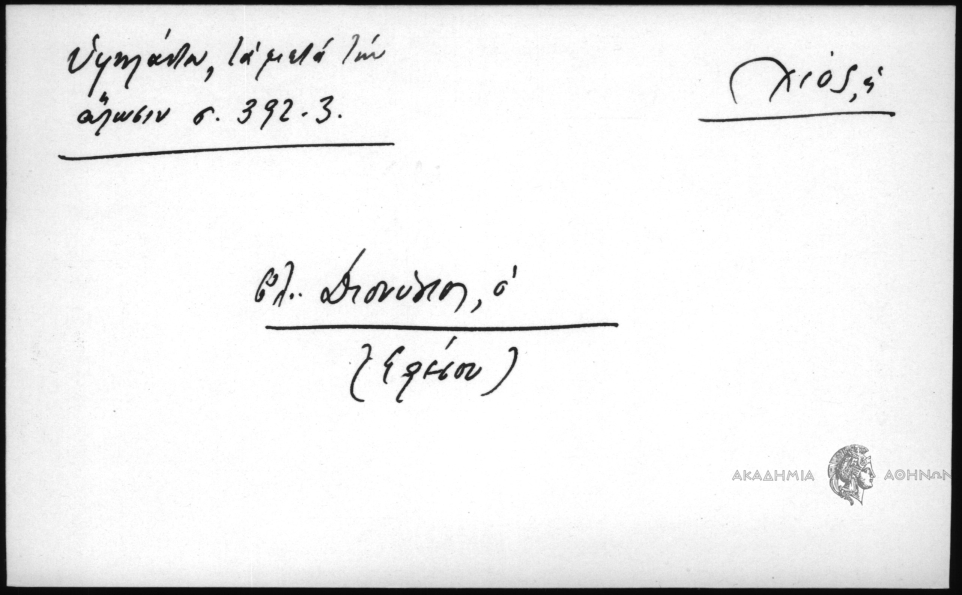 Ὑψηλάντου, τὰ μετὰ τὴν
ἅλωσιν σ. 392-3.
Χίος, ἡ
βλ. Διονύσιος, ὁ
(Ἐφέσου)
ΑΚΑΔΗΜΙΑ ΑΘΗΝΩΝ